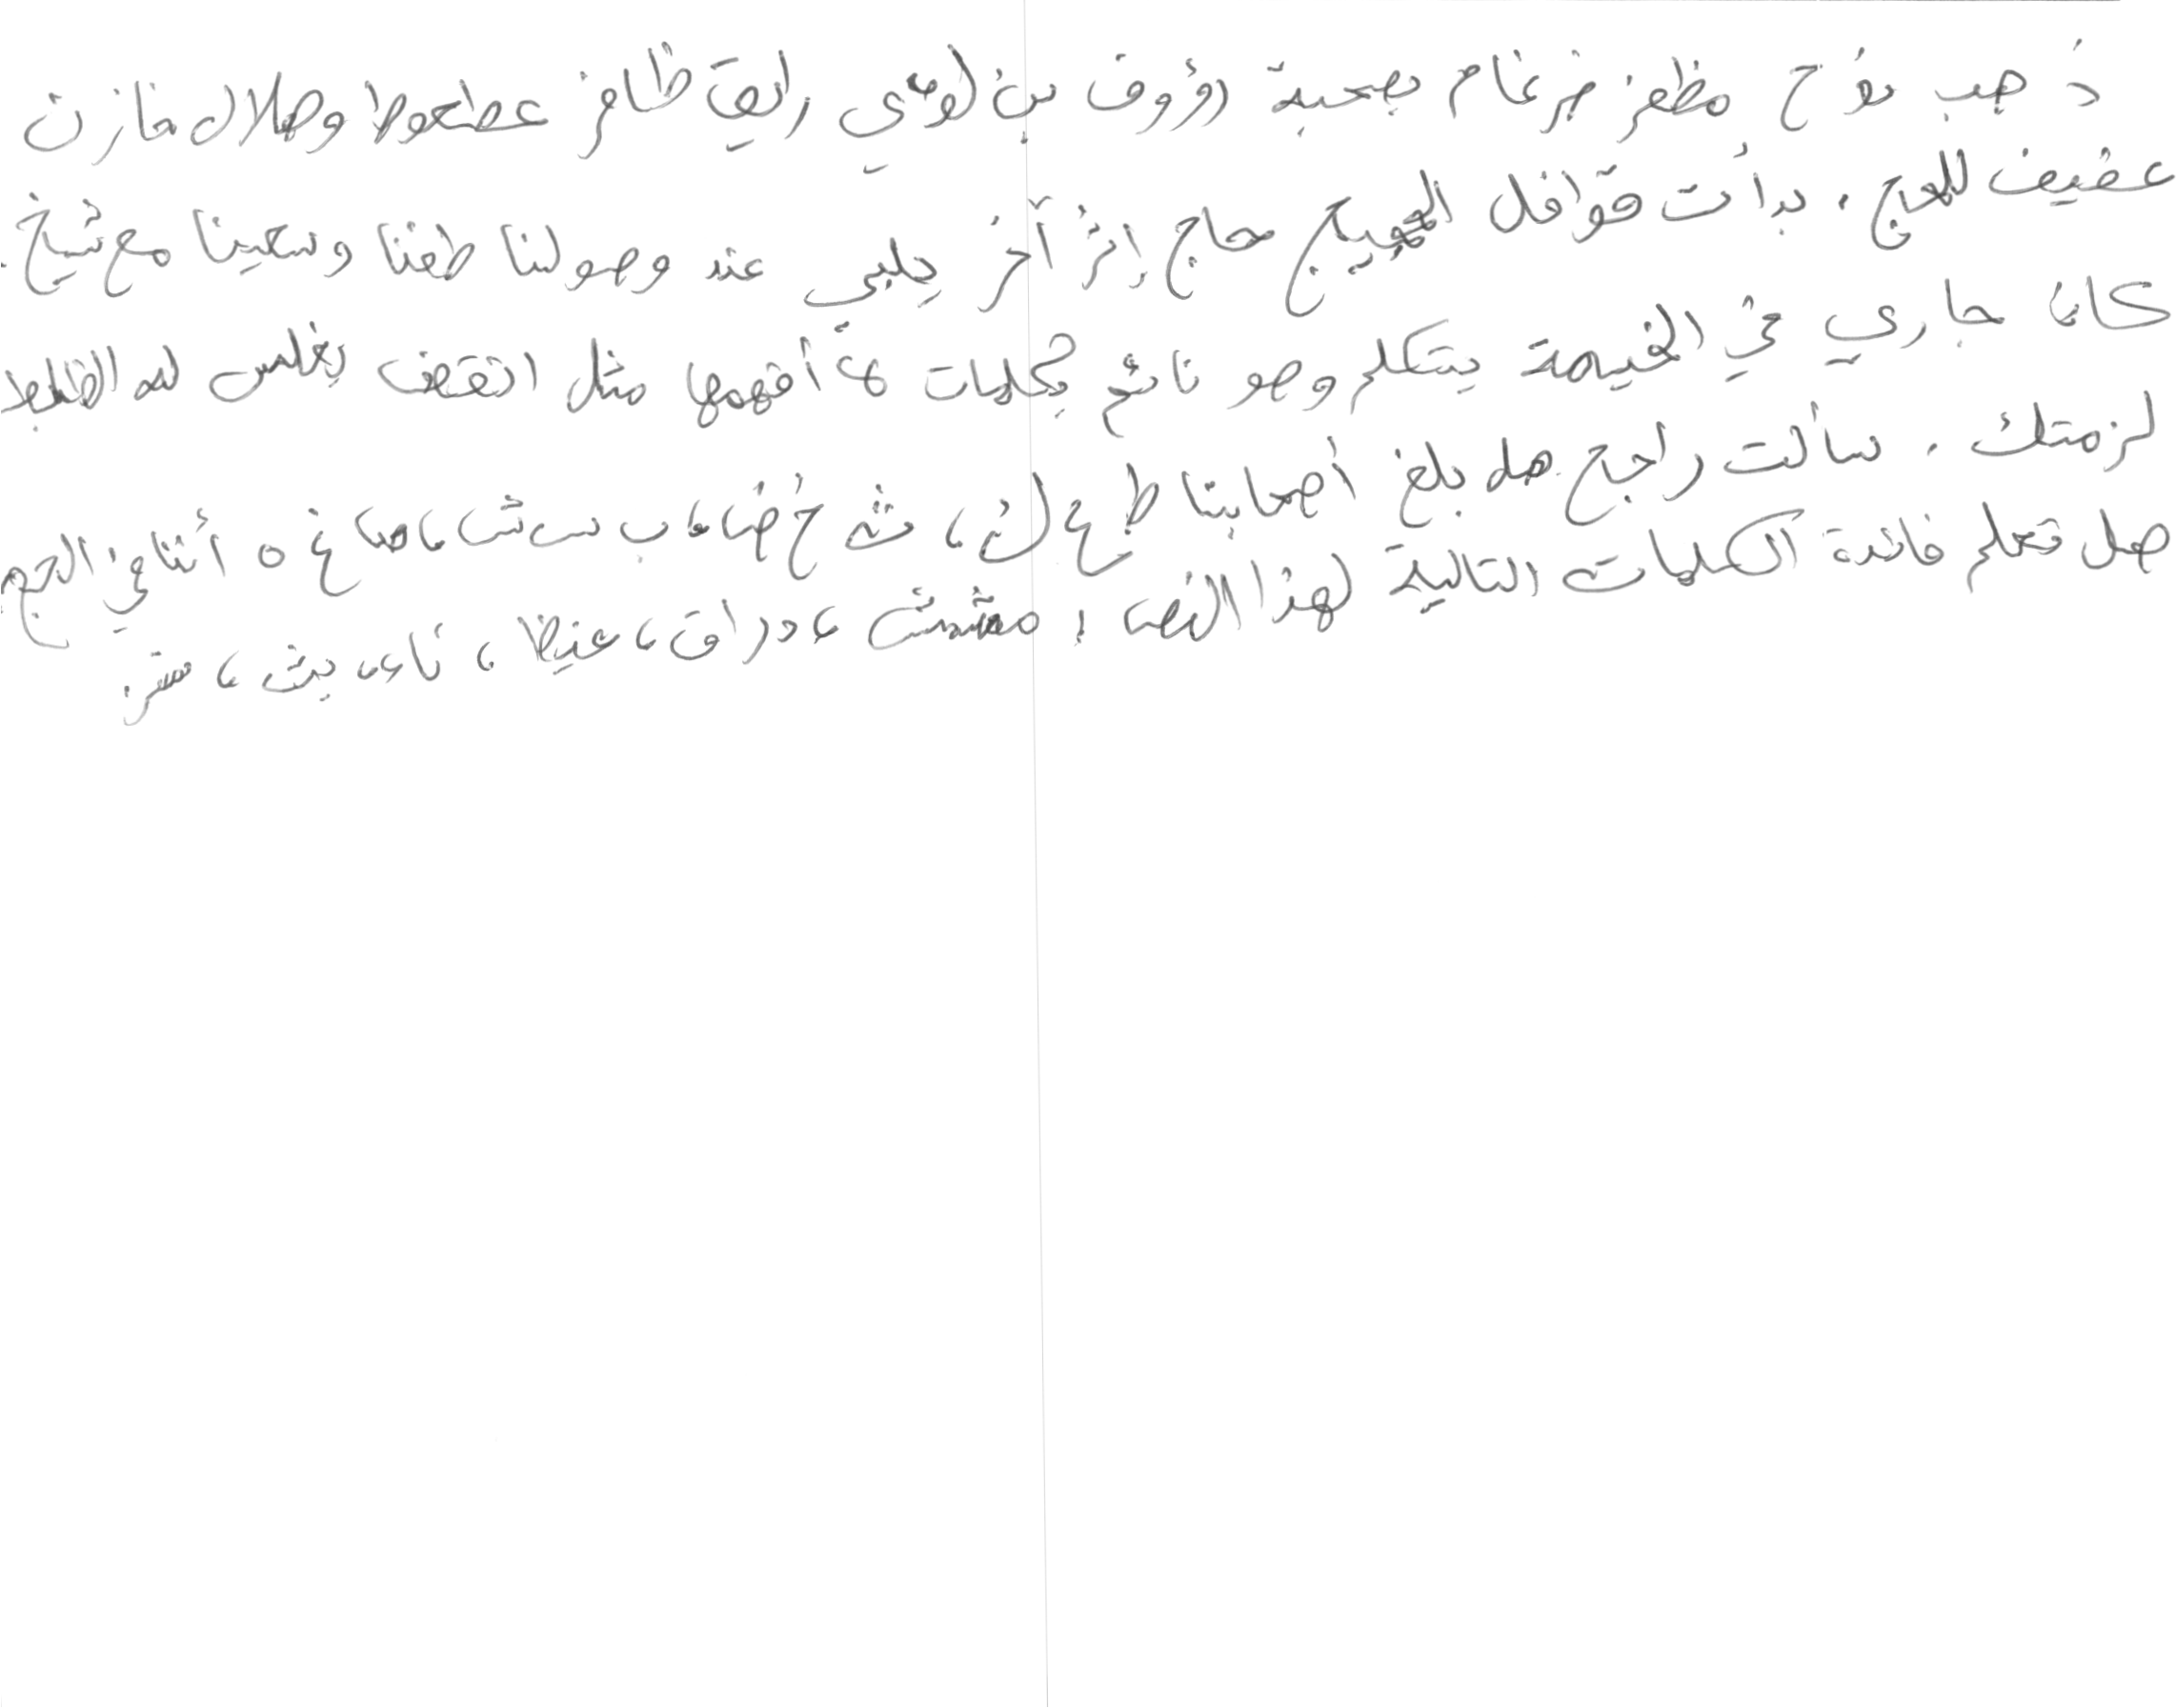 ذهب نوح مظفر ضرغام بصحبة رؤوف بن لؤي رفيق ظافر عطعوط وهلال خازن
عفيف للحج . بدأت قوافل الحجيج حاج إثر آخر يلبي عند وصولنا طفنا وسعينا مع شيخ
كان جاري في الخيمة يتكلم وهو نائم بكلمات لا أفهمها مثل انغض يغلس لله الظلظ
لزمتك . سألت راجح هل بلغ أصحابنا ط ع ك ن ، ش خ ض ء ب س ث ، ص غ ه أثناء الحج
هل تعلم فائدة الكلمات التالية لهذا النص : مشمش ، دراق ، عنيظ ، تاء ، يث ، ستر .